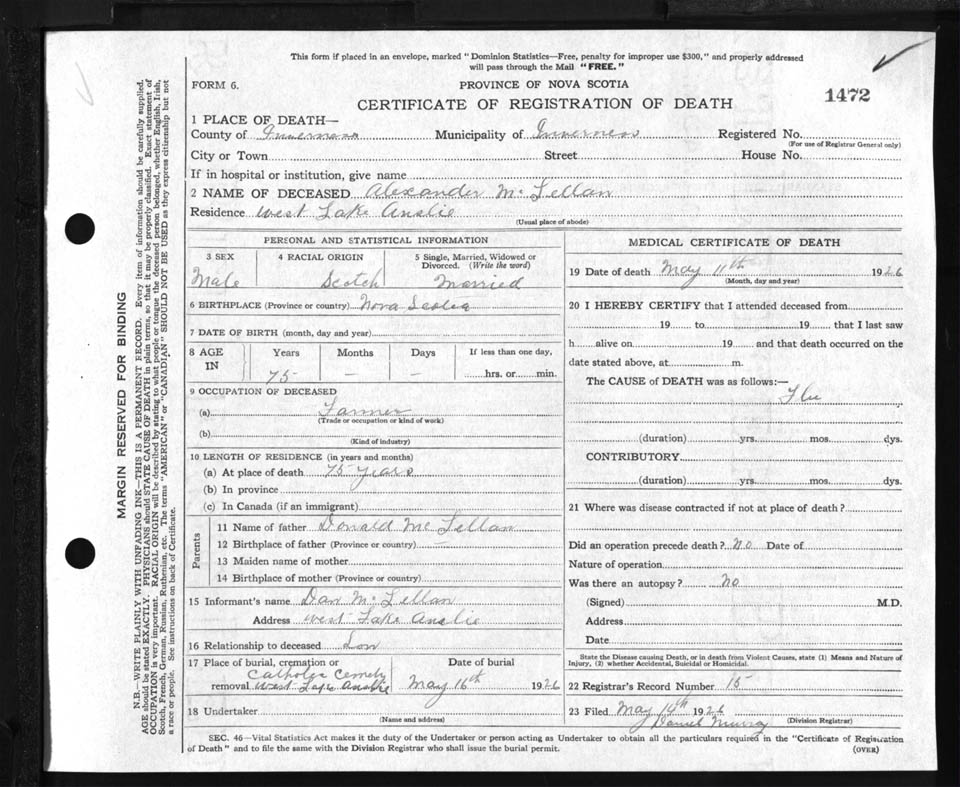 This form if placed in an envelope, marked "Dominion Statistics—Free, penalty for improper use $300," and properly addressed
will pass through the Mail "FREE."
FORM 6.
PROVINCE OF NOVA SCOTIA
CERTIFICATE OF REGISTRATION OF DEATH
1472
1 PLACE OF DEATH—
County of Inverness Municipality of Inverness Registered No.
(For use of Registrar General only)
City or Town Street House No.
If in hospital or institution, give name
2 NAME OF DECEASED Alexander Mc Lellan
Residence West Lake Anslie
(Usual place of abode)
PERSONAL AND STATISTICAL INFORMATION
3 SEX 4 RACIAL ORIGIN 5 Single, Married, Widowed or Divorced. (Write the word)
Male Scotch Married
6 BIRTHPLACE (Province or country) Nova Scotia
7 DATE OF BIRTH (month, day and year)
8 AGE IN Years Months Days If less than one day,
75 – – hrs. or min.
9 OCCUPATION OF DECEASED
(a) Farmer
(Trade or occupation or kind of work)
(b)
(Kind of industry)
10 LENGTH OF RESIDENCE (in years and months)
(a) At place of death 75 years
(b) In province
(c) In Canada (if an immigrant)
Parents
11 Name of father Donald Mc Lellan
12 Birthplace of father (Province or country) –
13 Maiden name of mother
14 Birthplace of mother (Province or country)
15 Informant's name Dan Mc Lellan
Address West Lake Anslie
16 Relationship to deceased Son
17 Place of burial, cremation or removal Date of burial
Catholic Cemety
West Lake Anslie May 16th 1926
18 Undertaker
(Name and address)
MEDICAL CERTIFICATE OF DEATH
19 Date of death May 11th 1926
(Month, day and year)
20 I HEREBY CERTIFY that I attended deceased from
19 to 19 that I last saw
h alive on 19 and that death occurred on the
date stated above, at m.
The CAUSE of DEATH was as follows:—
Flu
(duration) yrs. mos. dys.
CONTRIBUTORY
(duration) yrs. mos. dys.
21 Where was disease contracted if not at place of death?
Did an operation precede death? No Date of
Nature of operation
Was there an autopsy? No
(Signed) M.D.
Address
Date
State the Disease causing Death, or in death from Violent Causes, state (1) Means and Nature of
Injury, (2) whether Accidental, Suicidal or Homicidal.
22 Registrar's Record Number 15
23 Filed May 14th 1926
Daniel Murray
(Division Registrar)
SEC. 46—Vital Statistics Act makes it the duty of the Undertaker or person acting as Undertaker to obtain all the particulars required in the "Certificate of Registration
of Death" and to file the same with the Division Registrar who shall issue the burial permit.
(OVER)
MARGIN RESERVED FOR BINDING
N.B.—WRITE PLAINLY WITH UNFADING INK—THIS IS A PERMANENT RECORD. Every item of information should be carefully supplied.
AGE should be stated EXACTLY. PHYSICIANS should STATE CAUSE OF DEATH in plain terms, so that it may be properly classified. Exact statement of
OCCUPATION is very important. RACIAL ORIGIN will be described by stating to what people or tongue the deceased person belonged, whether English, Irish,
Scotch, French, German, Russian, Ruthenian, etc. The terms "AMERICAN" or "CANADIAN" SHOULD NOT BE USED as they express citizenship but not
a race or people. See instructions on back of Certificate.